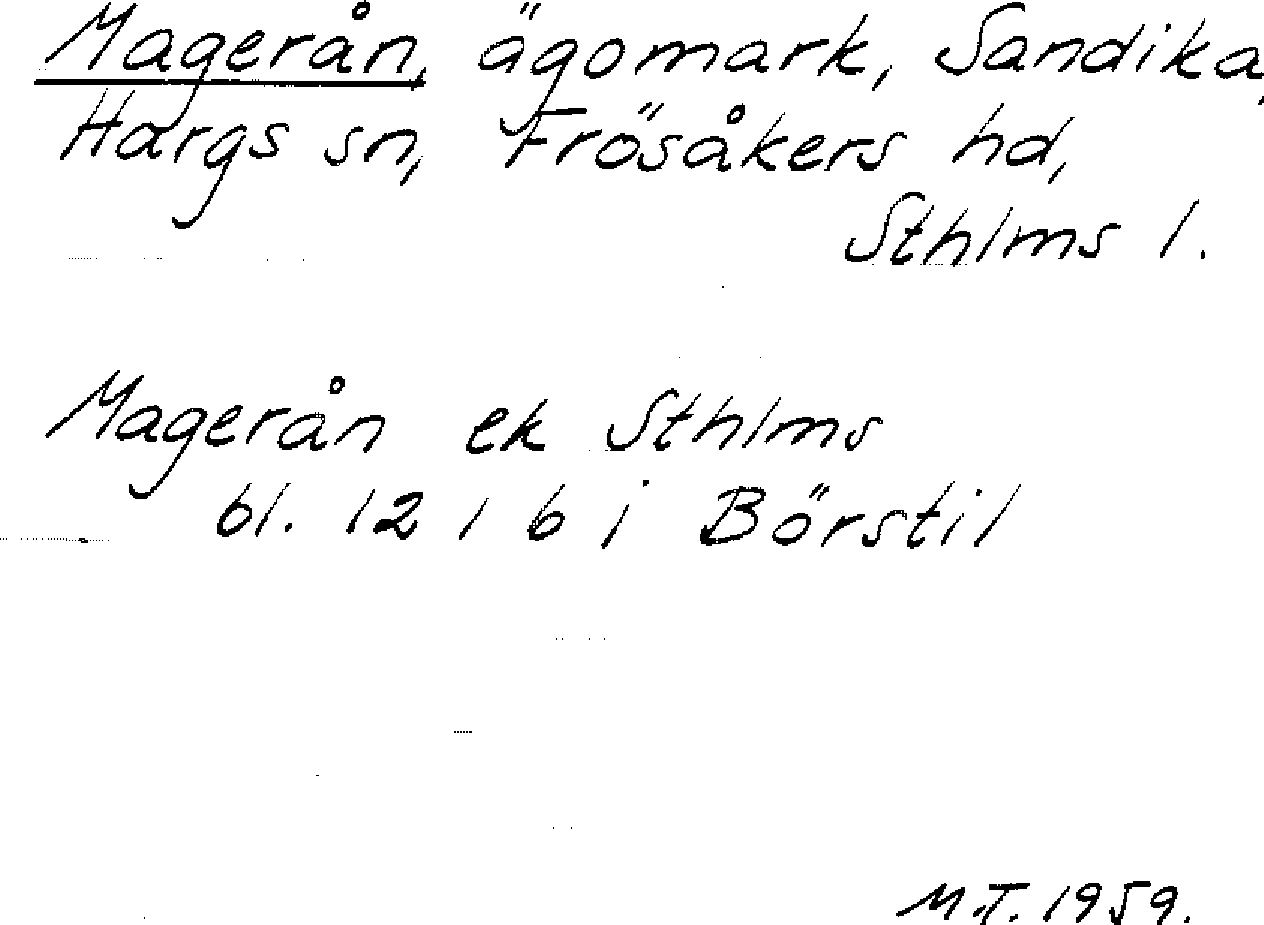 Magerån, ägomark, Sandika,
Hargs sn, Frösåkers hd,
Sthlms l.
Magerån ek Sthlms
bl. 12 1 6 i Börstil
M.T. 1959.